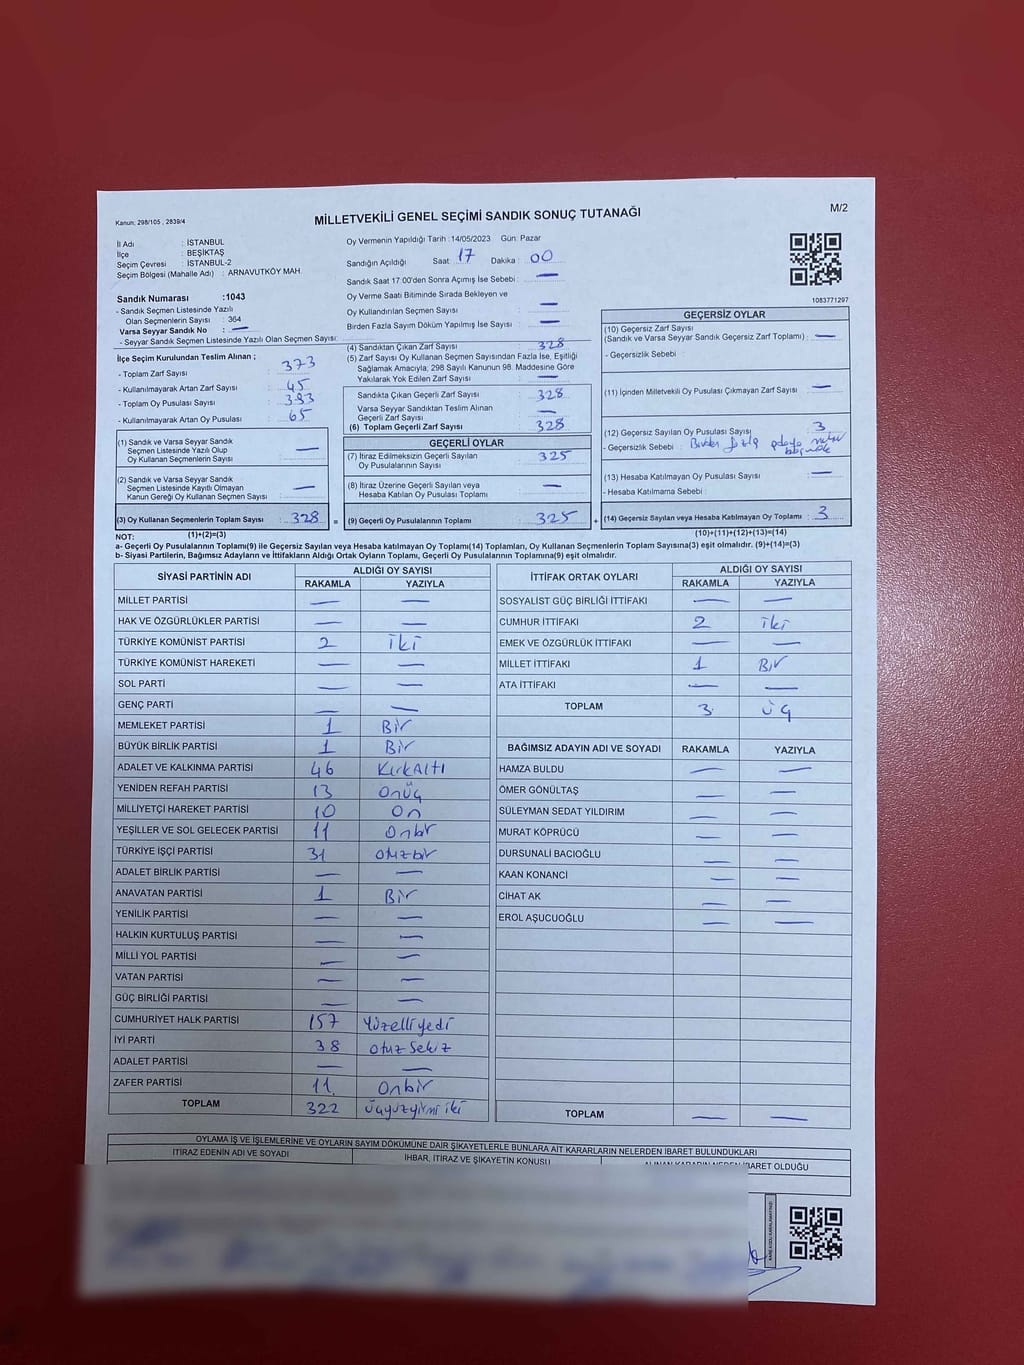 Kanun: 298/105 , 2839/4
MİLLETVEKİLİ GENEL SEÇİMİ SANDIK SONUÇ TUTANAĞI
M/2
İl Adı : İSTANBUL
İlçe : BEŞİKTAŞ
Seçim Çevresi : İSTANBUL-2
Seçim Bölgesi (Mahalle Adı) : ARNAVUTKÖY MAH.
Sandık Numarası :1043
- Sandık Seçmen Listesinde Yazılı
Olan Seçmenlerin Sayısı : 364
Varsa Seyyar Sandık No : —
- Seyyar Sandık Seçmen Listesinde Yazılı Olan Seçmen Sayısı:
Oy Vermenin Yapıldığı Tarih :14/05/2023 Gün: Pazar
Sandığın Açıldığı Saat : 17 Dakika : 00
Sandık Saat 17:00'den Sonra Açımış İse Sebebi : —
Oy Verme Saati Bitiminde Sırada Bekleyen ve
Oy Kullandırılan Seçmen Sayısı : —
Birden Fazla Sayım Döküm Yapılmış İse Sayısı : —
1083771297
İlçe Seçim Kurulundan Teslim Alınan ;
- Toplam Zarf Sayısı : 373
- Kullanılmayarak Artan Zarf Sayısı : 45
- Toplam Oy Pusulası Sayısı : 393
- Kullanılmayarak Artan Oy Pusulası : 65
(1) Sandık ve Varsa Seyyar Sandık
Seçmen Listesinde Yazılı Olup
Oy Kullanan Seçmenlerin Sayısı : —
(2) Sandık ve Varsa Seyyar Sandık
Seçmen Listesinde Kayıtlı Olmayan
Kanun Gereği Oy Kullanan Seçmen Sayısı : —
(3) Oy Kullanan Seçmenlerin Toplam Sayısı : 328
(4) Sandıktan Çıkan Zarf Sayısı : 328
(5) Zarf Sayısı Oy Kullanan Seçmen Sayısından Fazla İse, Eşitliği
Sağlamak Amacıyla; 298 Sayılı Kanunun 98. Maddesine Göre
Yakılarak Yok Edilen Zarf Sayısı : —
Sandıkta Çıkan Geçerli Zarf Sayısı : 328
Varsa Seyyar Sandıktan Teslim Alınan
Geçerli Zarf Sayısı : —
(6) Toplam Geçerli Zarf Sayısı : 328
GEÇERLİ OYLAR
(7) İtiraz Edilmeksizin Geçerli Sayılan
Oy Pusulalarının Sayısı : 325
(8) İtiraz Üzerine Geçerli Sayılan veya
Hesaba Katılan Oy Pusulası Toplamı : —
= (9) Geçerli Oy Pusulalarının Toplamı : 325
GEÇERSİZ OYLAR
(10) Geçersiz Zarf Sayısı
(Sandık ve Varsa Seyyar Sandık Geçersiz Zarf Toplamı) : —
- Geçersizlik Sebebi :
(11) İçinden Milletvekili Oy Pusulası Çıkmayan Zarf Sayısı : —
(12) Geçersiz Sayılan Oy Pusulası Sayısı : 3
- Geçersizlik Sebebi : Birden fazla adaya mühür
(13) Hesaba Katılmayan Oy Pusulası Sayısı : —
- Hesaba Katılmama Sebebi :
+ (14) Geçersiz Sayılan veya Hesaba Katılmayan Oy Toplamı : 3
NOT: (1)+(2)=(3)
(10)+(11)+(12)+(13)=(14)
a- Geçerli Oy Pusulalarının Toplamı(9) ile Geçersiz Sayılan veya Hesaba katılmayan Oy Toplamı(14) Toplamları, Oy Kullanan Seçmenlerin Toplam Sayısına(3) eşit olmalıdır. (9)+(14)=(3)
b- Siyasi Partilerin, Bağımsız Adayların ve İttifakların Aldığı Ortak Oyların Toplamı, Geçerli Oy Pusulalarının Toplamına(9) eşit olmalıdır.
SİYASİ PARTİNİN ADI ALDIĞI OY SAYISI
RAKAMLA YAZIYLA
MİLLET PARTİSİ — —
HAK VE ÖZGÜRLÜKLER PARTİSİ — —
TÜRKİYE KOMÜNİST PARTİSİ 2 iki
TÜRKİYE KOMÜNİST HAREKETİ — —
SOL PARTİ — —
GENÇ PARTİ — —
MEMLEKET PARTİSİ 1 Bir
BÜYÜK BİRLİK PARTİSİ 1 Bir
ADALET VE KALKINMA PARTİSİ 46 KırkAltı
YENİDEN REFAH PARTİSİ 13 Onüç
MİLLİYETÇİ HAREKET PARTİSİ 10 On
YEŞİLLER VE SOL GELECEK PARTİSİ 11 Onbir
TÜRKİYE İŞÇİ PARTİSİ 31 otuzbir
ADALET BİRLİK PARTİSİ — —
ANAVATAN PARTİSİ 1 Bir
YENİLİK PARTİSİ — —
HALKIN KURTULUŞ PARTİSİ — —
MİLLİ YOL PARTİSİ — —
VATAN PARTİSİ — —
GÜÇ BİRLİĞİ PARTİSİ — —
CUMHURİYET HALK PARTİSİ 157 Yüzelliyedi
İYİ PARTİ 38 otuz sekiz
ADALET PARTİSİ — —
ZAFER PARTİSİ 11 Onbir
TOPLAM 322 üçyüzyirmi iki
İTTİFAK ORTAK OYLARI ALDIĞI OY SAYISI
RAKAMLA YAZIYLA
SOSYALİST GÜÇ BİRLİĞİ İTTİFAKI — —
CUMHUR İTTİFAKI 2 iki
EMEK VE ÖZGÜRLÜK İTTİFAKI — —
MİLLET İTTİFAKI 1 Bir
ATA İTTİFAKI — —
TOPLAM 3 üç
BAĞIMSIZ ADAYIN ADI VE SOYADI RAKAMLA YAZIYLA
HAMZA BULDU — —
ÖMER GÖNÜLTAŞ — —
SÜLEYMAN SEDAT YILDIRIM — —
MURAT KÖPRÜCÜ — —
DURSUNALİ BACIOĞLU — —
KAAN KONANCI — —
CİHAT AK — —
EROL AŞUCUOĞLU — —
TOPLAM — —
OYLAMA İŞ VE İŞLEMLERİNE VE OYLARIN SAYIM DÖKÜMÜNE DAİR ŞİKAYETLERLE BUNLARA AİT KARARLARIN NELERDEN İBARET BULUNDUKLARI
İTİRAZ EDENİN ADI VE SOYADI İHBAR, İTİRAZ VE ŞİKAYETİN KONUSU ALINAN KARARIN NEDEN İBARET OLDUĞU